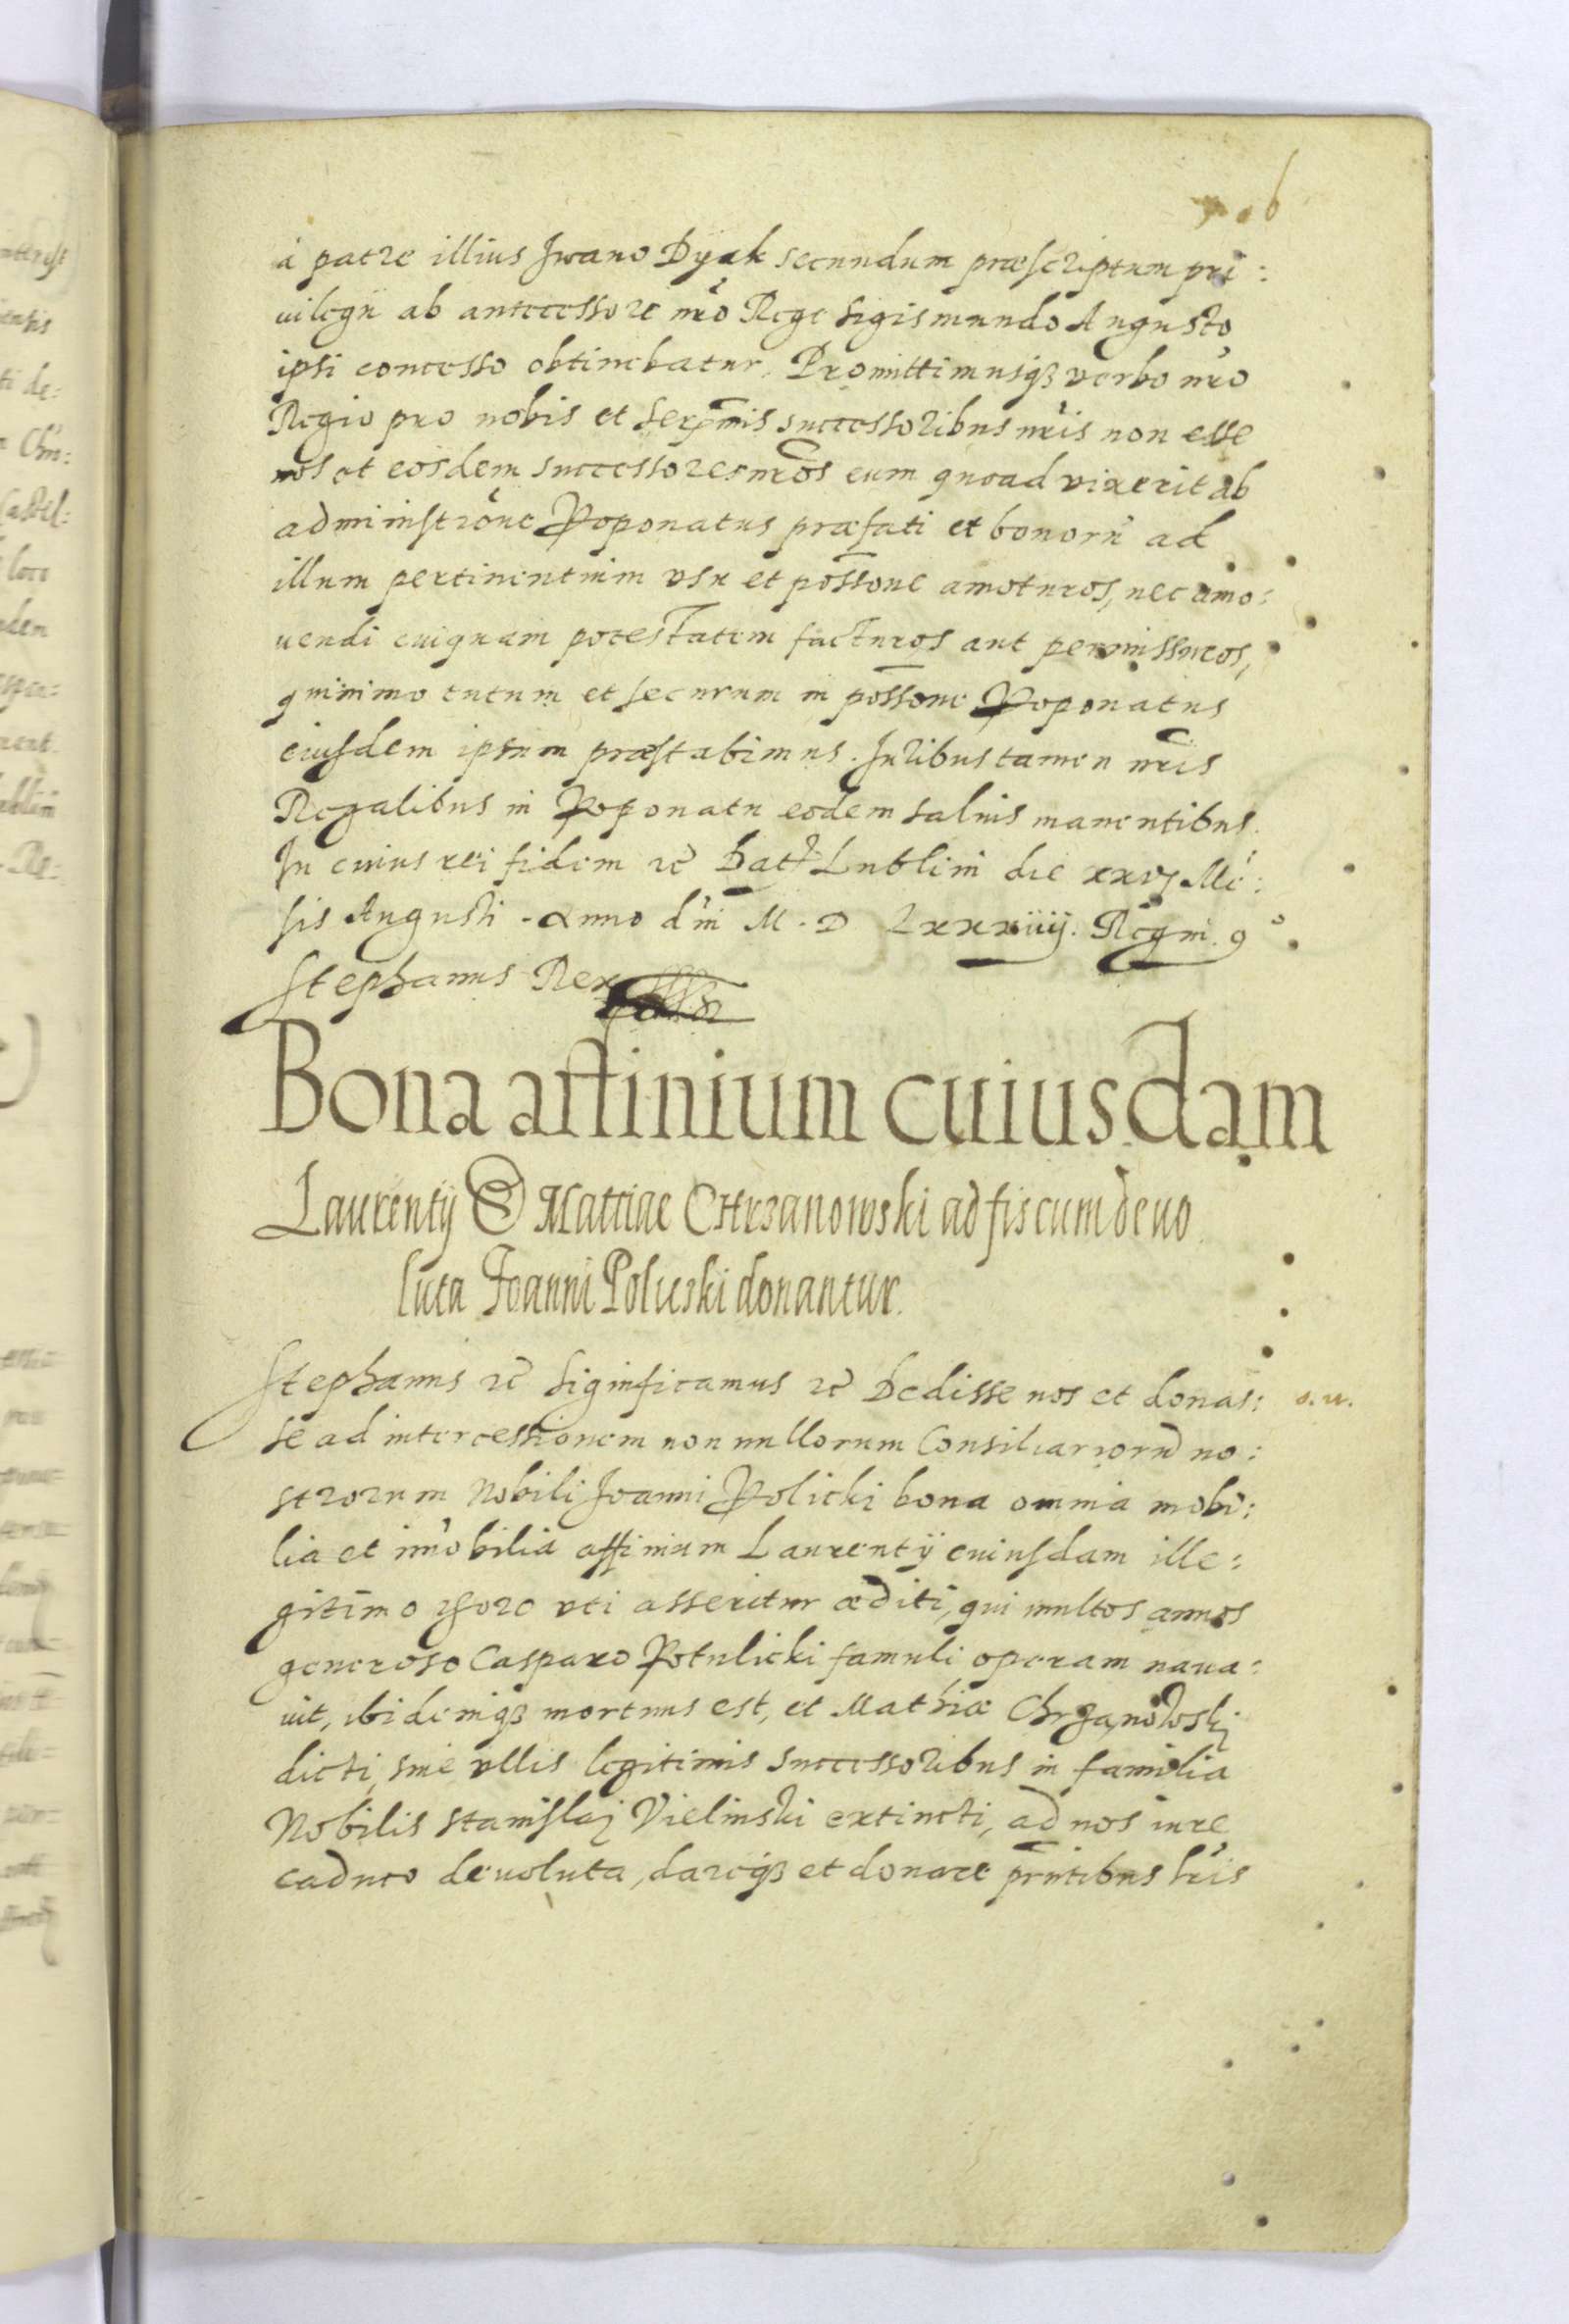 à patre illius Jwano Dyak secundum præscriptum pri:
uilegii ab antecessore nr̃o Rege Sigismundo Augusto
ipsi concesso obtinebatur. Promittimusqꝫ verbo nr̃o
Regio pro nobis et Serẽmis successoribus nr̃is non esse
nos et eosdem successores nr̃os eum quoad vixerit ab
administrõne Poponatus præfati et bonorũ ad
illum pertinentium vsu et possõne amoturos, nec amo:
uendi cuiquam potestatem facturos aut permissuros,
quinimo tutum et securum in possõne Poponatus
eiusdem ipsum præstabimus. Juribus tamen nr̃is
Regalibus in Poponatu eodem saluis manentibus.
In cuius rei fidem ꝛc̃ Dat Lublini die xxvj Mẽ:
sis Augusti . Anno dñi M . D Lxxxiiij. Regni. 9°
Stephanus Rex
Bona affinium cuiusdam
Laurentij & Mattiae CHrzanowski ad fiscum deuo
luta Joanni Poluski donantur.
Stephanus ꝛc̃ Significamus ꝛc̃ Dedisse nos et donas: o. u.
se ad intercessionem non nullorum Consiliariorũ no:
strorum Nobili Joanni Policki bona omnia mobi:
lia et im̃obilia affinium Laurentij cuiusdam ille:
gitimo thoro vti asseritur æditi, qui multos annos
generoso Casparo Potulicki famuli operam naua:
uit, ibidemqꝫ mortuus est, et Mathiæ Chrzanowskj
dicti, sine vllis legitimis successoribus in familia
Nobilis Stanislaj Vielinski extincti, ad nos iure
caduco deuoluta, dareqꝫ et donare pr̃ntibus lr̃is